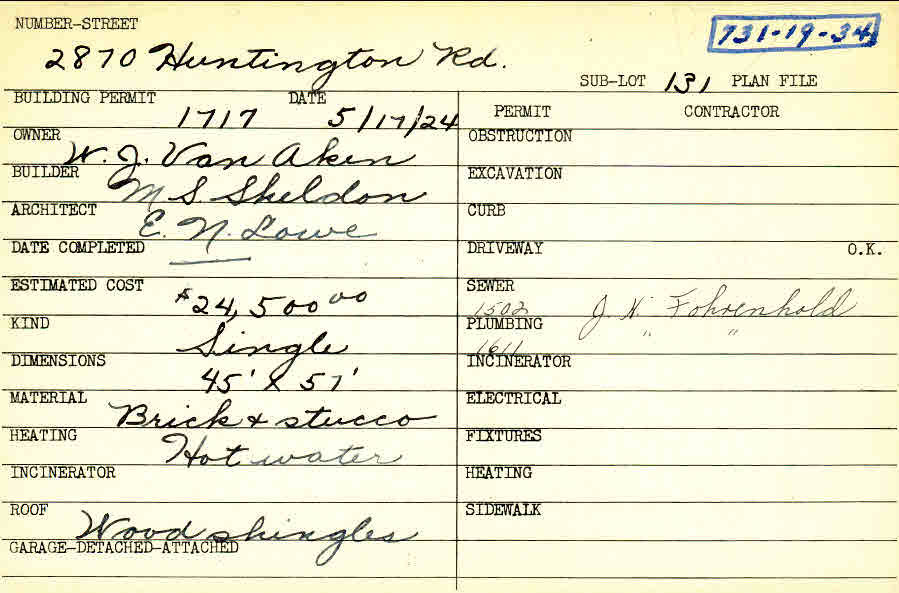 NUMBER-STREET
731-19-34
2870 Huntington Rd.
SUB-LOT 131 PLAN FILE
BUILDING PERMIT 1717 DATE 5/17/24
PERMIT CONTRACTOR
OWNER W. J. Van Aken
OBSTRUCTION
BUILDER M S. Sheldon
EXCAVATION
ARCHITECT E. N. Lowe
CURB
DATE COMPLETED
DRIVEWAY O.K.
ESTIMATED COST $24,500 00
SEWER 1502 J. N. Fohrenhold
KIND Single
PLUMBING 1611 " "
DIMENSIONS 45' X 57'
INCINERATOR
MATERIAL Brick & stucco
ELECTRICAL
HEATING Hot water
FIXTURES
INCINERATOR
HEATING
ROOF Wood shingles
SIDEWALK
GARAGE-DETACHED-ATTACHED